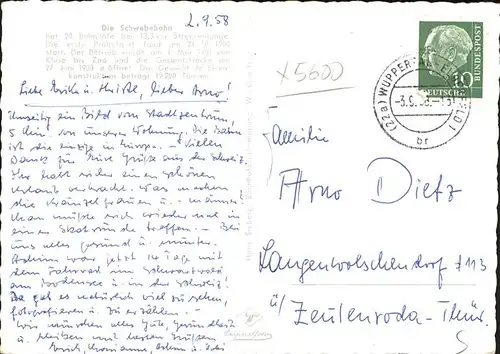 Die Schwebebahn
hat 20 Bahnhöfe bei 13,3 km Streckenlänge.
Die erste Probefahrt fand am 24. 10. 1900
statt. Der Betrieb wurde am 1. Mai 1901 von
Kluse bis Zoo und die Gesamtstrecke am
27. Juni 1903 eröffnet. Das Gewicht der Eisen-
konstruktion beträgt 19 200 Tonnen.
2.9.58
Liebe Erika u. Christl, lieber Arno!
Umseitig ein Bild vom Stadtzentrum,
5 Min. von unserer Wohnung. Die Bahn
ist die einzige in Europa. – Vielen
Dank für Eure Grüße aus der Schweiz.
Ihr habt sicher einen schönen
Urlaub verbracht. Was machen
die
Man müßte sich wieder mal in
einem treffen. – Bei
uns alles gesund u. munter.
war jetzt 14 Tage mit
dem Fahrrad im Schwarzwald
am Bodensee u. in der Schweiz!
Da gab es natürlich viel zu sehen,
fotografieren u. zu erzählen. –
Wir wünschen alles Gute, Gesundheit
u. bleiben mit besten Grüßen
x5600
(22a) WUPPER-ELBERFELD 1
-3.9.58
br
10
DEUTSCHE BUNDESPOST
Familie
Arno Dietz
Langenwolschendorf #113
ü/ Zeulenroda-Thür.
5